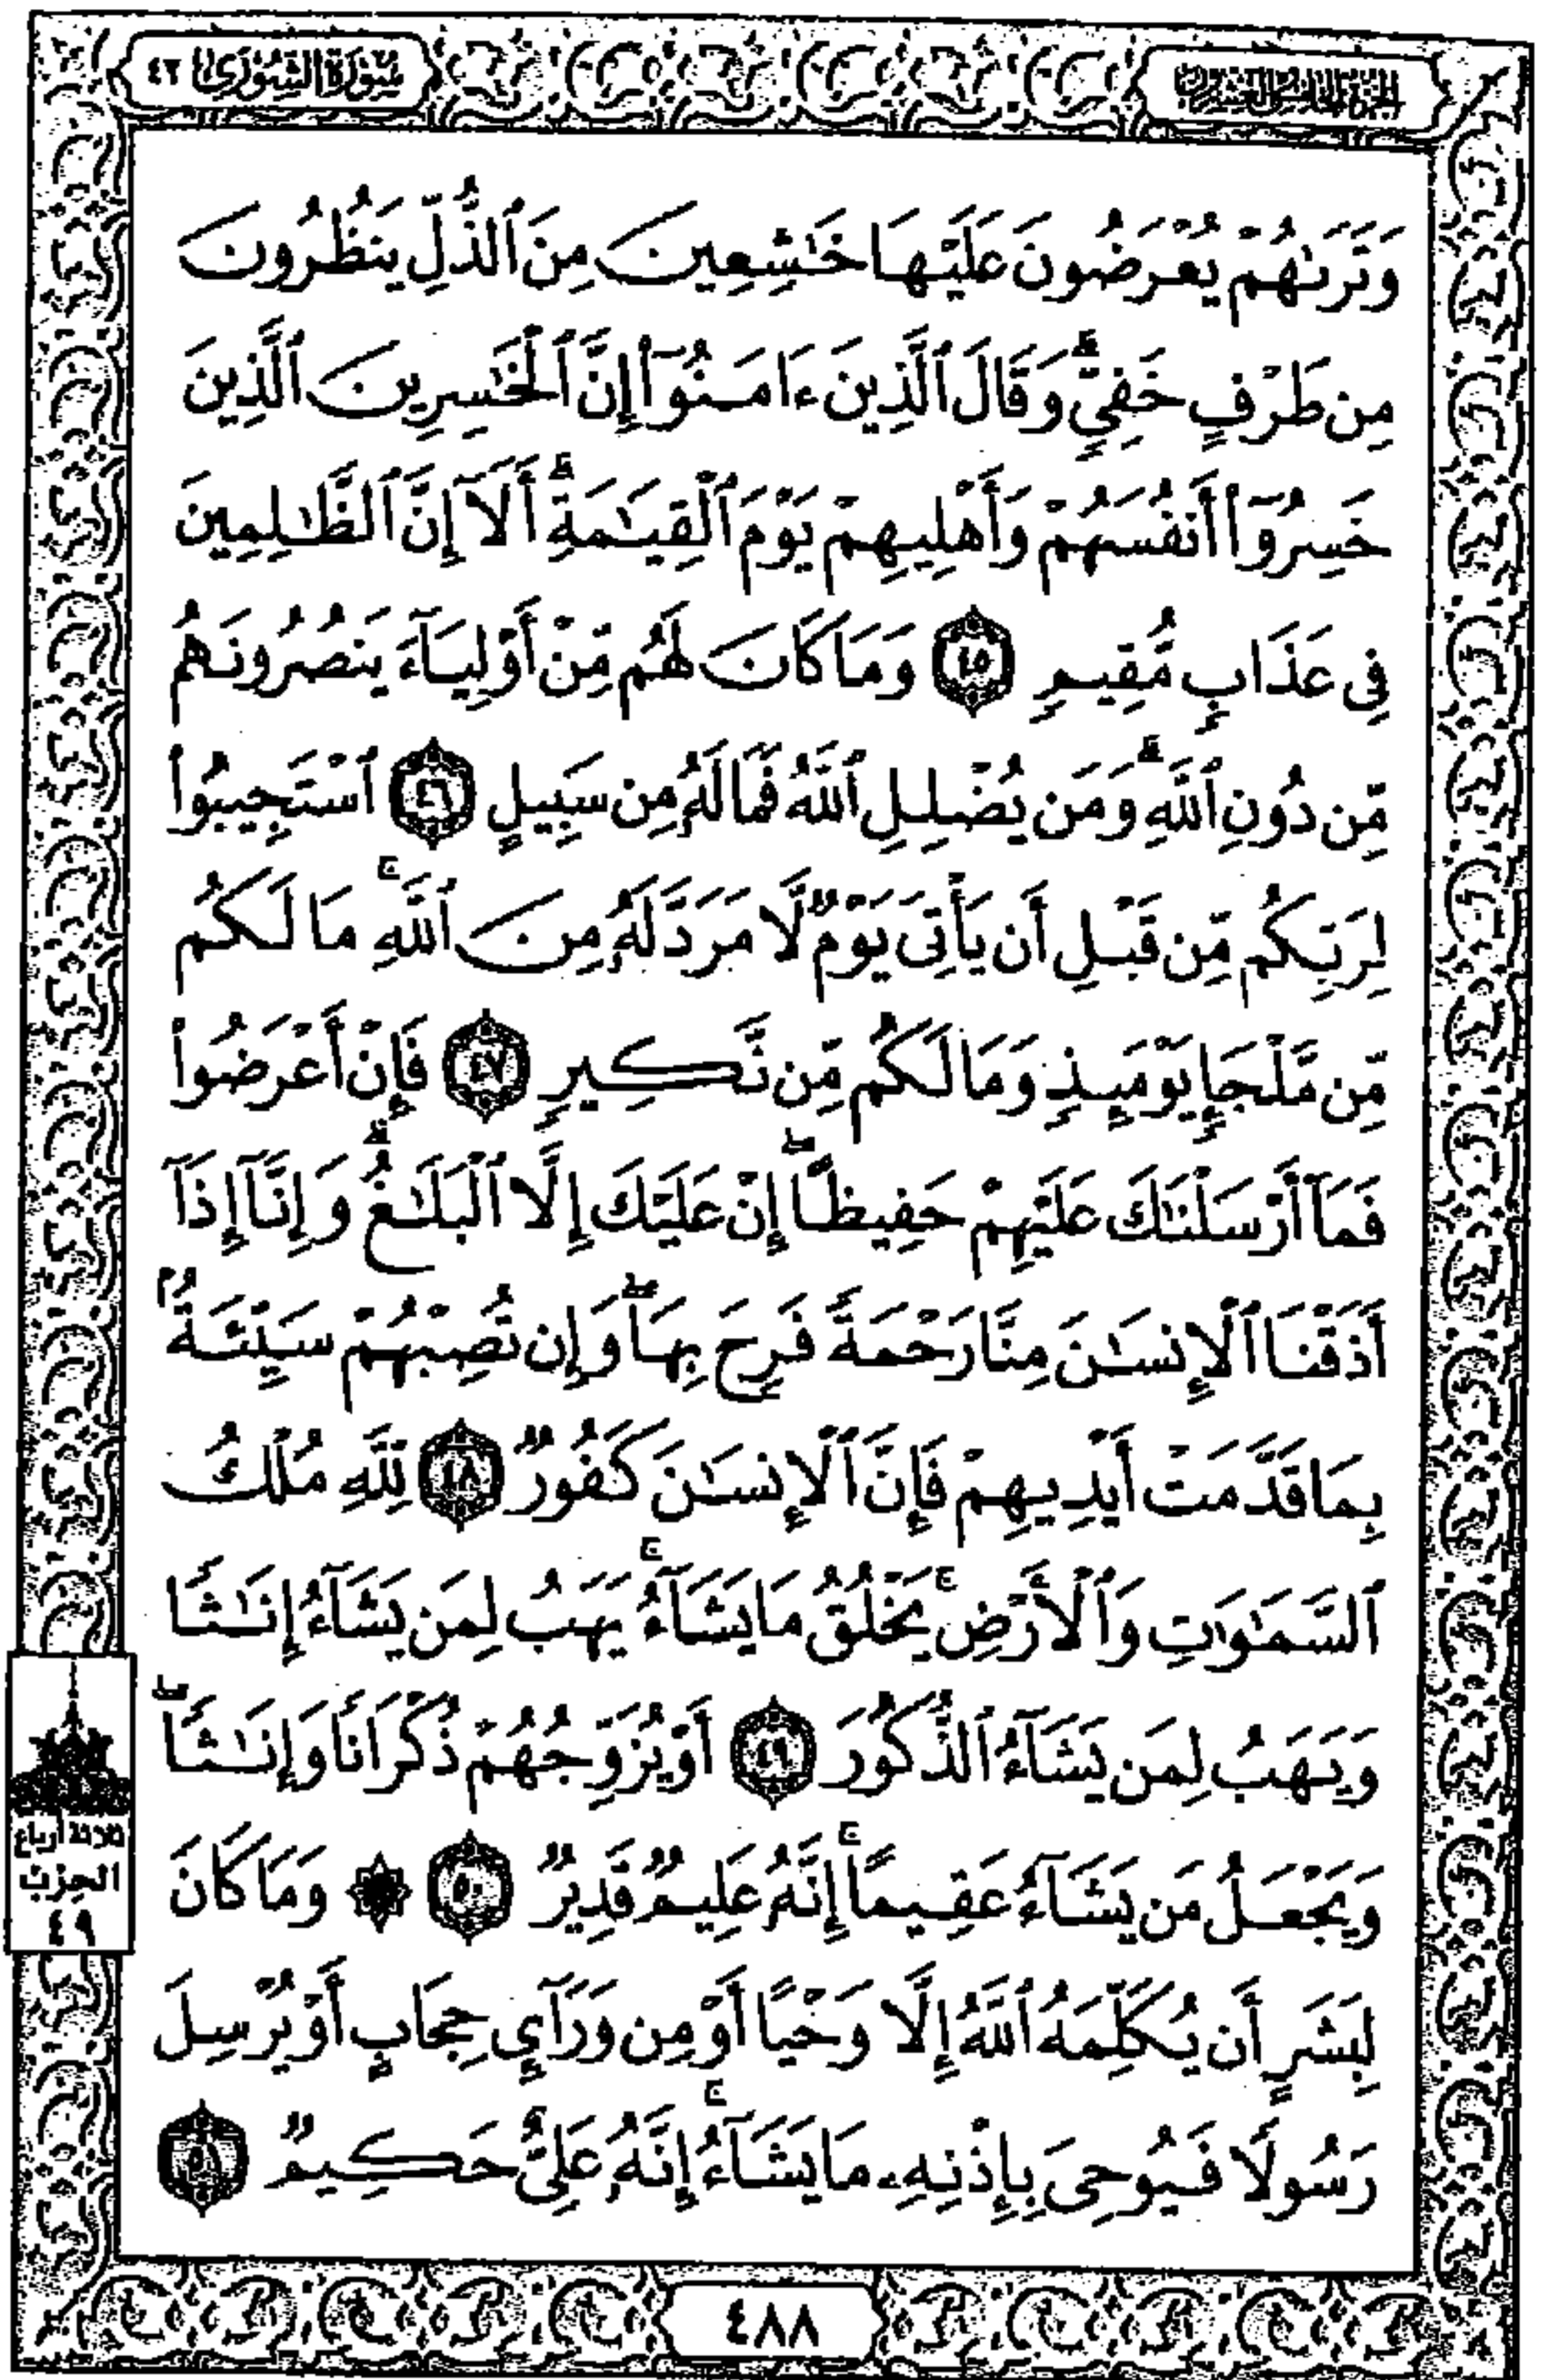 الجزء الخامس والعشرون
سورة الشورى ٤٢
وَتَرَىٰهُمْ يُعْرَضُونَ عَلَيْهَا خَٰشِعِينَ مِنَ ٱلذُّلِّ يَنظُرُونَ
مِن طَرْفٍ خَفِىٍّۗ وَقَالَ ٱلَّذِينَ ءَامَنُوٓا۟ إِنَّ ٱلْخَٰسِرِينَ ٱلَّذِينَ
خَسِرُوٓا۟ أَنفُسَهُمْ وَأَهْلِيهِمْ يَوْمَ ٱلْقِيَٰمَةِۗ أَلَآ إِنَّ ٱلظَّٰلِمِينَ
فِى عَذَابٍ مُّقِيمٍ ٤٥ وَمَا كَانَ لَهُم مِّنْ أَوْلِيَآءَ يَنصُرُونَهُم
مِّن دُونِ ٱللَّهِۗ وَمَن يُضْلِلِ ٱللَّهُ فَمَا لَهُۥ مِن سَبِيلٍ ٤٦ ٱسْتَجِيبُوا۟
لِرَبِّكُم مِّن قَبْلِ أَن يَأْتِىَ يَوْمٌ لَّا مَرَدَّ لَهُۥ مِنَ ٱللَّهِۚ مَا لَكُم
مِّن مَّلْجَإٍ يَوْمَئِذٍ وَمَا لَكُم مِّن نَّكِيرٍ ٤٧ فَإِنْ أَعْرَضُوا۟
فَمَآ أَرْسَلْنَٰكَ عَلَيْهِمْ حَفِيظًاۖ إِنْ عَلَيْكَ إِلَّا ٱلْبَلَٰغُۗ وَإِنَّآ إِذَآ
أَذَقْنَا ٱلْإِنسَٰنَ مِنَّا رَحْمَةً فَرِحَ بِهَاۖ وَإِن تُصِبْهُمْ سَيِّئَةٌۢ
بِمَا قَدَّمَتْ أَيْدِيهِمْ فَإِنَّ ٱلْإِنسَٰنَ كَفُورٌ ٤٨ لِّلَّهِ مُلْكُ
ٱلسَّمَٰوَٰتِ وَٱلْأَرْضِۚ يَخْلُقُ مَا يَشَآءُۚ يَهَبُ لِمَن يَشَآءُ إِنَٰثًا
وَيَهَبُ لِمَن يَشَآءُ ٱلذُّكُورَ ٤٩ أَوْ يُزَوِّجُهُمْ ذُكْرَانًا وَإِنَٰثًاۖ
وَيَجْعَلُ مَن يَشَآءُ عَقِيمًاۚ إِنَّهُۥ عَلِيمٌ قَدِيرٌ ٥٠ ۞ وَمَا كَانَ
لِبَشَرٍ أَن يُكَلِّمَهُ ٱللَّهُ إِلَّا وَحْيًا أَوْ مِن وَرَآئِ حِجَابٍ أَوْ يُرْسِلَ
رَسُولًا فَيُوحِىَ بِإِذْنِهِۦ مَا يَشَآءُۚ إِنَّهُۥ عَلِىٌّ حَكِيمٌ ٥١
ثلاثة أرباع
الحزب
٤٩
٤٨٨